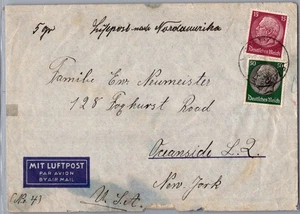 5 gr Luftpost nach Nordamerika
15
Deutsches Reich
Familie Neumeister
50
Deutsches Reich
128 Foghurst Road
Oceanside L. I.
MIT LUFTPOST
PAR AVION
BY AIR MAIL
New York
U. S. A.